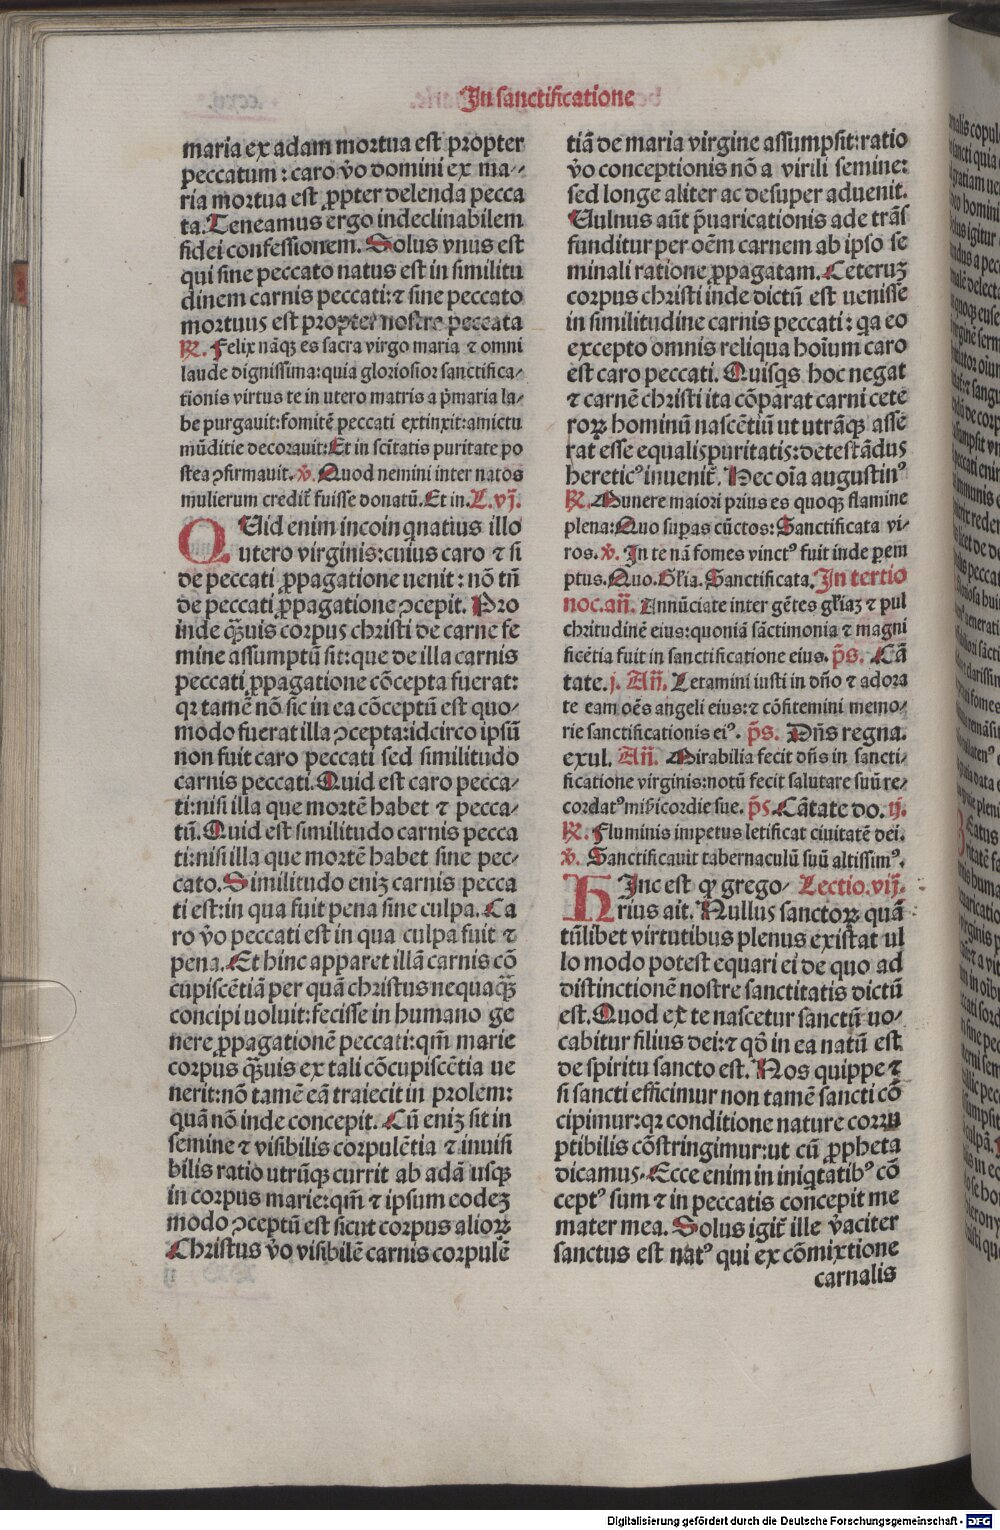 In sanctificatione
maria ex adam mortua est propter
peccatum : caro v̉o domini ex ma-
ria mortua est ꝓpter delenda pecca
ta. Teneamus ergo indeclinabilem
fidei confessionem. Solus vnus est
qui sine peccato natus est in similitu
dinem carnis peccati: ⁊ sine peccato
mortuus est propter nostra peccata
℟. Felix nāqꝫ es sacra virgo maria ⁊ omni
laude dignissima: quia gloriosior sanctifica-
tionis virtus te in utero matris a p̄maria la-
be purgauit: fomitē peccati extinxit: amictu
mūditie decorauit: Et in sc̄itatis puritate po
stea ꝯfirmauit. ℣. Quod nemini inter natos
mulierum credit̄ fuisse donatū. Et in. L. vj.
QUid enim incoinquatius illo
utero virginis: cuius caro ⁊ si
de peccati ꝓpagatione uenit : nō tn̄
de peccati ꝓpagatione ꝯcepit. Pro
inde qꝫuis corpus christi de carne fe
mine assumptū sit: que de illa carnis
peccati ꝓpagatione cōcepta fuerat:
qꝛ tamē nō sic in ea cōceptū est quo-
modo fuerat illa ꝯcepta: idcirco ipsū
non fuit caro peccati sed similitudo
carnis peccati. Quid est caro pecca-
ti: nisi illa que mortē habet ⁊ pecca-
tū. Quid est similitudo carnis pecca
ti: nisi illa que mortē habet sine pec-
cato. Similitudo eniꝫ carnis pecca
ti est: in qua fuit pena sine culpa. Ca
ro v̉o peccati est in qua culpa fuit ⁊
pena. Et hinc apparet illā carnis cō
cupiscētiā per quā christus nequaqꝫ
concipi uoluit: fecisse in humano ge
nere ꝓpagationē peccati: qm̄ marie
corpus qꝫuis ex tali cōcupiscētia ue
nerit: nō tamē eā traiecit in prolem:
quā nō inde concepit. Cū eniꝫ sit in
semine ⁊ visibilis corpulētia ⁊ inuisi
bilis ratio utrūqꝫ currit ab adā usqꝫ
in corpus marie: qm̄ ⁊ ipsum eodeꝫ
modo ꝯceptū est sicut corpus alioꝝ
Christus v̉o visibilē carnis corpulē
tiā de maria virgine assumpsit: ratio
v̉o conceptionis nō a virili semine:
sed longe aliter ac desuper aduenit.
Uulnus aūt p̄uaricationis ade trās
funditur per oēm carnem ab ipso se
minali ratione ꝓpagatam. Ceteruꝫ
corpus christi inde dictū est uenisse
in similitudine carnis peccati : qa eo
excepto omnis reliqua hoīum caro
est caro peccati. Quisqs hoc negat
⁊ carnē christi ita cōparat carni cete
roꝝ hominū nascētiū ut utrāqꝫ asse
rat esse equalis puritatis: detestādus
hereticꝰ inuenit̄. Hec oīa augustinꝰ
℟. Munere maiori prius es quoqꝫ flamine
plena: Quo suꝑas cūctos: Sanctificata vi-
ros. ℣. In te nā fomes vinctꝰ fuit inde ꝑem
ptus. Quo. Gl̄ia. Sanctificata. In tertio
noc. an̄. Annūciate inter gētes gl̄iaꝫ ⁊ pul
chritudinē eius: quoniā sāctimonia ⁊ magni
ficētia fuit in sanctificatione eius. p̄s. Cā
tate. j. An̄. Letamini iusti in dn̄o ⁊ adora
te eam oēs angeli eius: ⁊ cōfitemini memo-
rie sanctificationis eiꝰ. p̄s. Dn̄s regna.
exul. An̄. Mirabilia fecit dn̄s in sancti-
ficatione virginis: notū fecit salutare suū re-
cordatꝰ mīs̄icordie sue. p̄s. Cātate do. ij.
℟. Fluminis impetus letificat ciuitatē dei.
℣. Sanctificauit tabernaculū suū altissimꝰ.
HInc est qꝙ grego- Lectio. vij.
rius ait. Nullus sanctoꝝ quā
tūlibet virtutibus plenus existat ul
lo modo potest equari ei de quo ad
distinctionē nostre sanctitatis dictū
est. Quod ex te nascetur sanctū uo-
cabitur filius dei: ⁊ qō in ea natū est
de spiritu sancto est. Nos quippe ⁊
si sancti efficimur non tamē sancti cō
cipimur: qꝛ conditione nature corru
ptibilis cōstringimur: ut cū ꝓpheta
dicamus. Ecce enim in iniqtatibꝰ cō
ceptꝰ sum ⁊ in peccatis concepit me
mater mea. Solus igit̄ ille v̉aciter
sanctus est natꝰ qui ex cōmixtione
carnalis
Digitalisierung gefördert durch die Deutsche Forschungsgemeinschaft - DFG